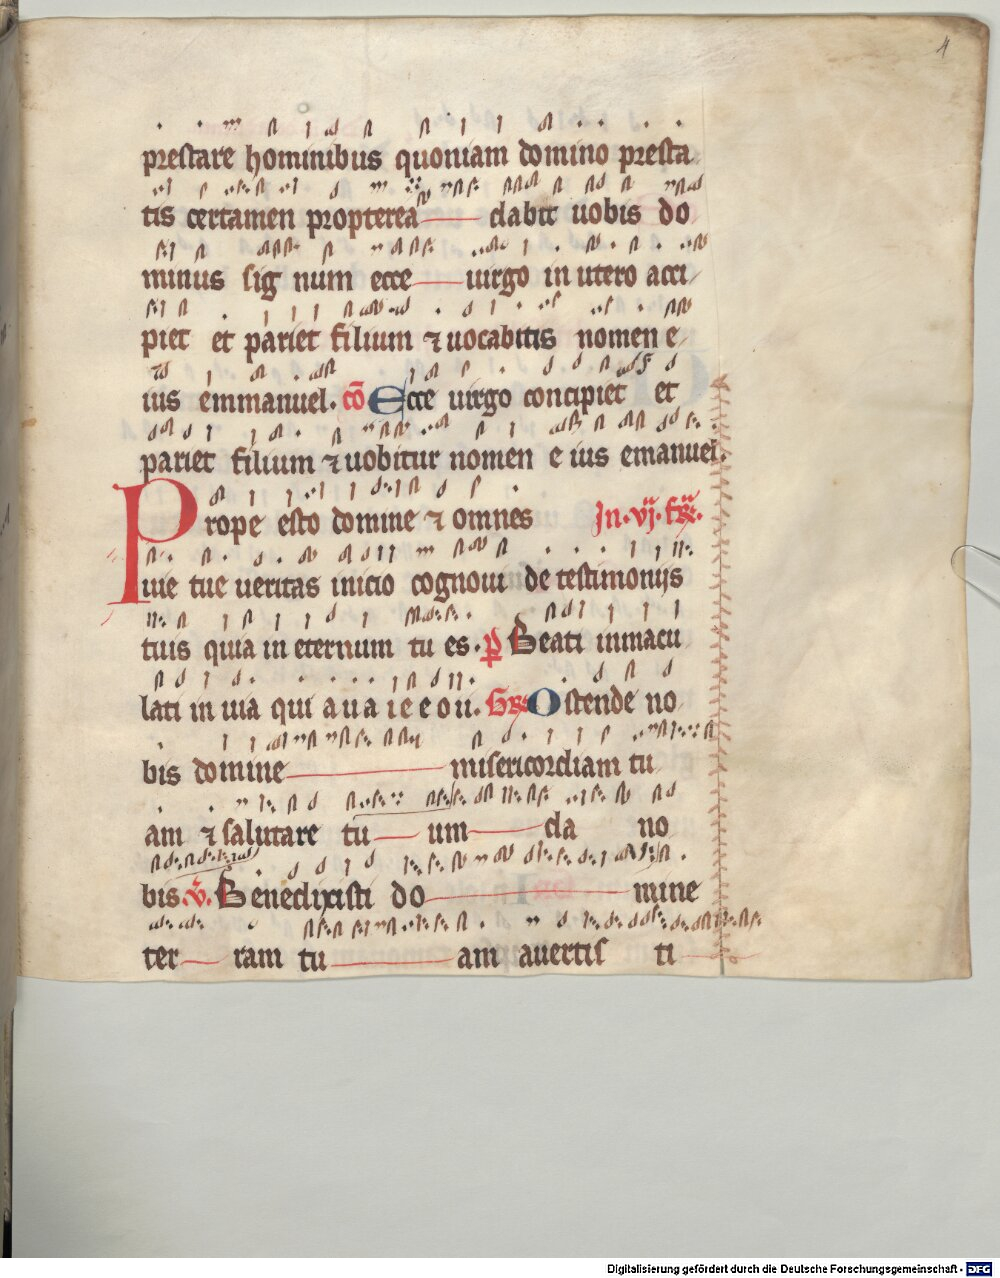 4
prestare hominibus quoniam domino presta
tis certamen propterea dabit uobis do
minus sig num ecce uirgo in utero acci
piet et pariet filium ⁊ uocabitis nomen e
ius emmanuel. cō Ecce uirgo concipiet et
pariet filium ⁊ uobitur nomen e ius emanuel.
Prope esto domine ⁊ omnes In·vj·
uie tue ueritas inicio cognoui de testimonijs
tuis quia in eternum tu es. p̄ Beati inmacu
lati in uia qui a u a i e e o u i. Gr̄ Ostende no
bis domine misericordiam tu
am ⁊ salutare tu um da no
bis v̄. Benedixisti do mine
ter ram tu am auertis ti
Digitalisierung gefördert durch die Deutsche Forschungsgemeinschaft - DFG